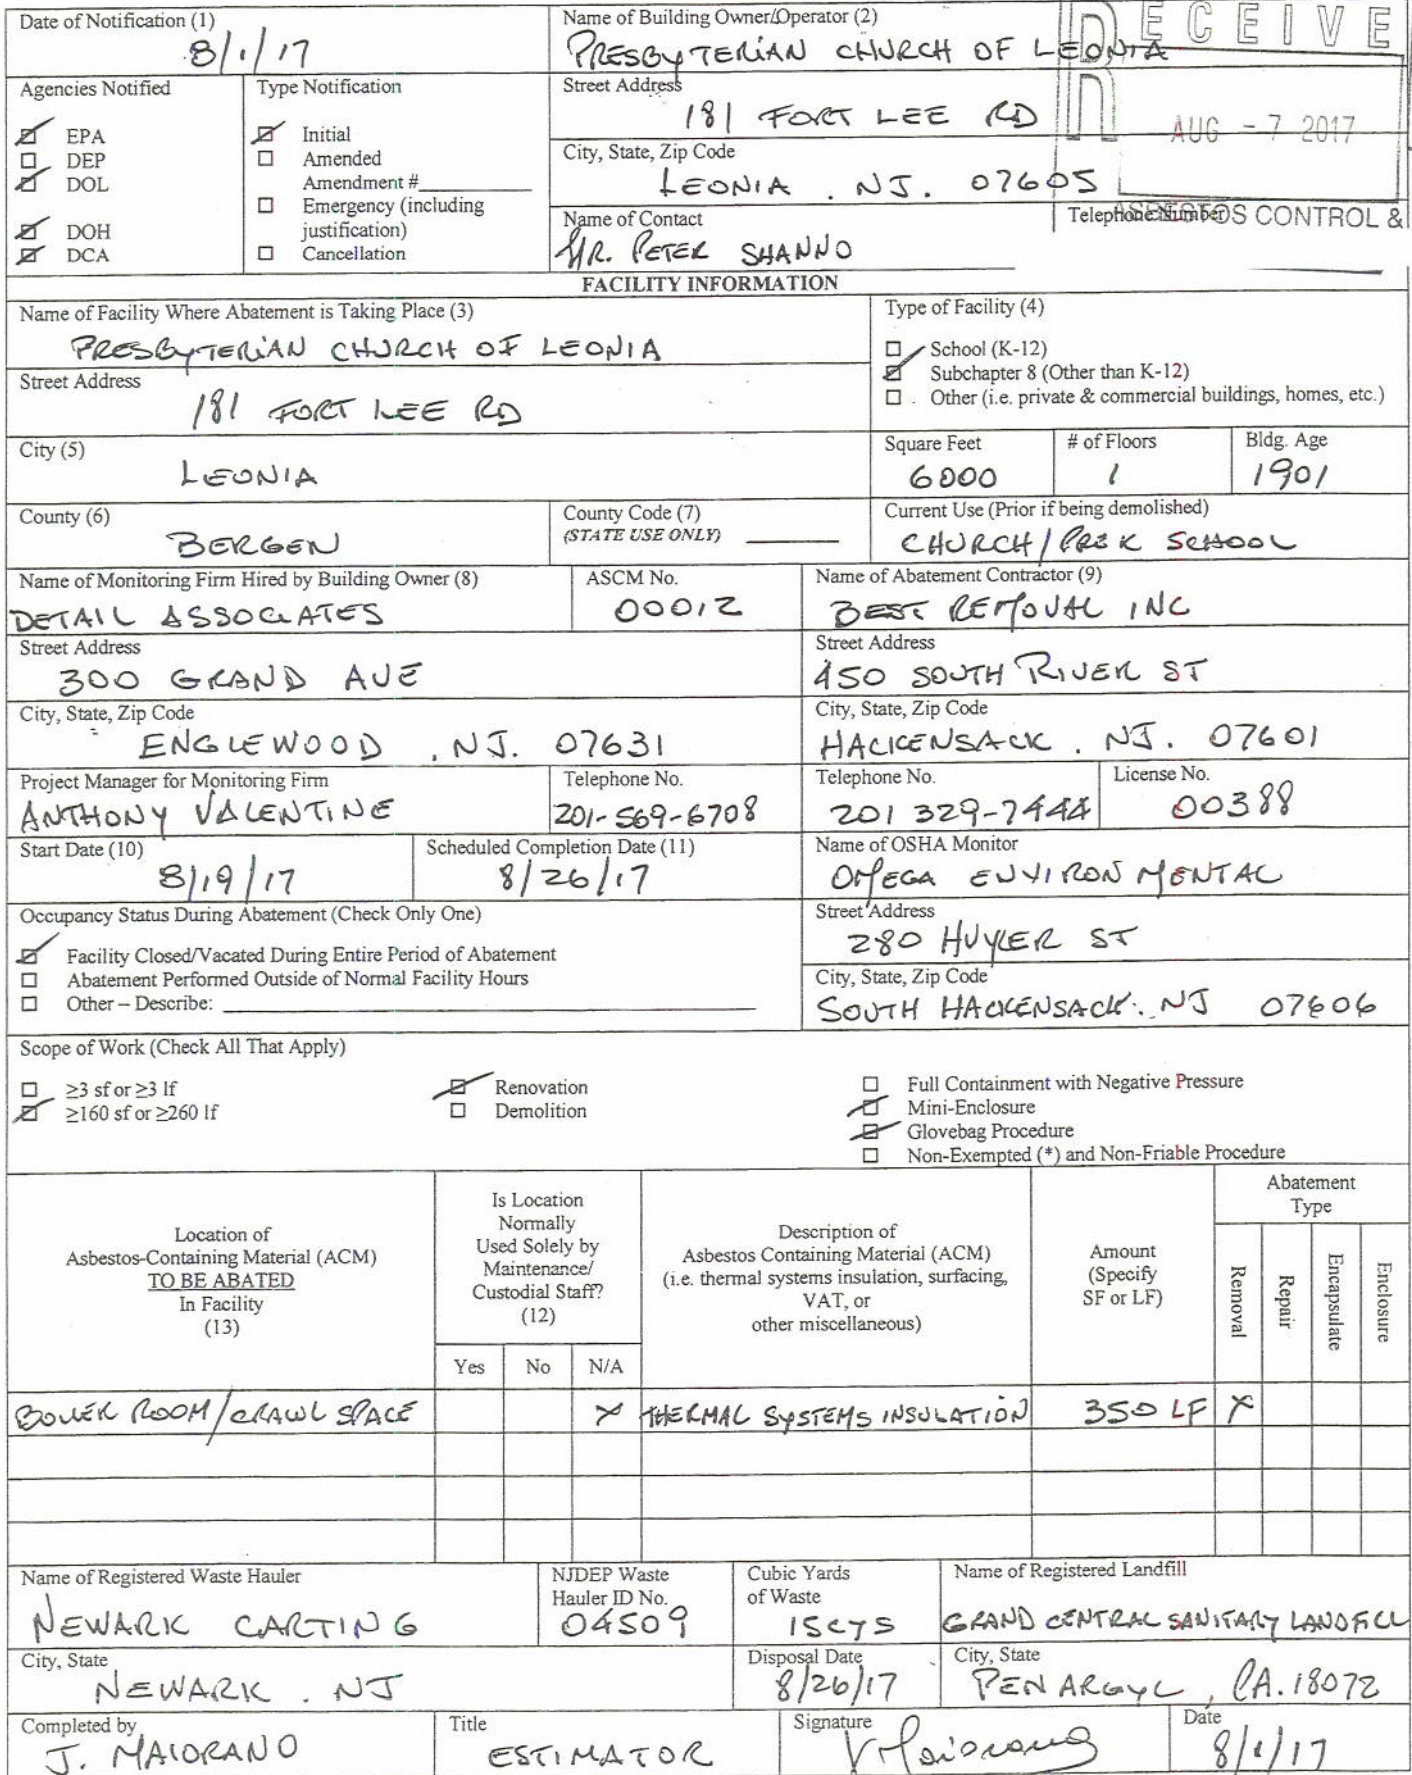 Date of Notification (1)
8/1/17
Name of Building Owner/Operator (2)
PRESBYTERIAN CHURCH OF LEONIA
RECEIVE
AUG - 7 2017
ASBESTOS CONTROL &
Agencies Notified
EPA
DEP
DOL
DOH
DCA
Type Notification
Initial
Amended
Amendment #
Emergency (including
justification)
Cancellation
Street Address
181 FORT LEE RD
City, State, Zip Code
LEONIA . NJ. 07605
Name of Contact
MR. PETER SHANNO
Telephone Number
FACILITY INFORMATION
Name of Facility Where Abatement is Taking Place (3)
PRESBYTERIAN CHURCH OF LEONIA
Type of Facility (4)
School (K-12)
Subchapter 8 (Other than K-12)
Other (i.e. private & commercial buildings, homes, etc.)
Street Address
181 FORT LEE RD
City (5)
LEONIA
Square Feet
6000
# of Floors
1
Bldg. Age
1901
County (6)
BERGEN
County Code (7)
(STATE USE ONLY)
Current Use (Prior if being demolished)
CHURCH/PREK SCHOOL
Name of Monitoring Firm Hired by Building Owner (8)
DETAIL ASSOCIATES
ASCM No.
00012
Name of Abatement Contractor (9)
BEST REMOVAL INC
Street Address
300 GRAND AVE
Street Address
450 SOUTH RIVER ST
City, State, Zip Code
ENGLEWOOD . NJ. 07631
City, State, Zip Code
HACKENSACK . NJ. 07601
Project Manager for Monitoring Firm
ANTHONY VALENTINE
Telephone No.
201-569-6708
Telephone No.
201 329-7444
License No.
00388
Start Date (10)
8/19/17
Scheduled Completion Date (11)
8/26/17
Name of OSHA Monitor
OMEGA ENVIRONMENTAL
Occupancy Status During Abatement (Check Only One)
Facility Closed/Vacated During Entire Period of Abatement
Abatement Performed Outside of Normal Facility Hours
Other – Describe:
Street Address
280 HUYLER ST
City, State, Zip Code
SOUTH HACKENSACK. NJ 07606
Scope of Work (Check All That Apply)
≥3 sf or ≥3 lf
≥160 sf or ≥260 lf
Renovation
Demolition
Full Containment with Negative Pressure
Mini-Enclosure
Glovebag Procedure
Non-Exempted (*) and Non-Friable Procedure
Location of
Asbestos-Containing Material (ACM)
TO BE ABATED
In Facility
(13)
Is Location
Normally
Used Solely by
Maintenance/
Custodial Staff?
(12)
Yes No N/A
Description of
Asbestos Containing Material (ACM)
(i.e. thermal systems insulation, surfacing,
VAT, or
other miscellaneous)
Amount
(Specify
SF or LF)
Abatement
Type
Removal
Repair
Encapsulate
Enclosure
BOILER ROOM/CRAWL SPACE X THERMAL SYSTEMS INSULATION 350 LF X
Name of Registered Waste Hauler
NEWARK CARTING
NJDEP Waste
Hauler ID No.
04509
Cubic Yards
of Waste
15CYS
Name of Registered Landfill
GRAND CENTRAL SANITARY LANDFILL
City, State
NEWARK . NJ
Disposal Date
8/26/17
City, State
PEN ARGYL , PA. 18072
Completed by
J. MAIORANO
Title
ESTIMATOR
Signature
J Maiorano
Date
8/1/17